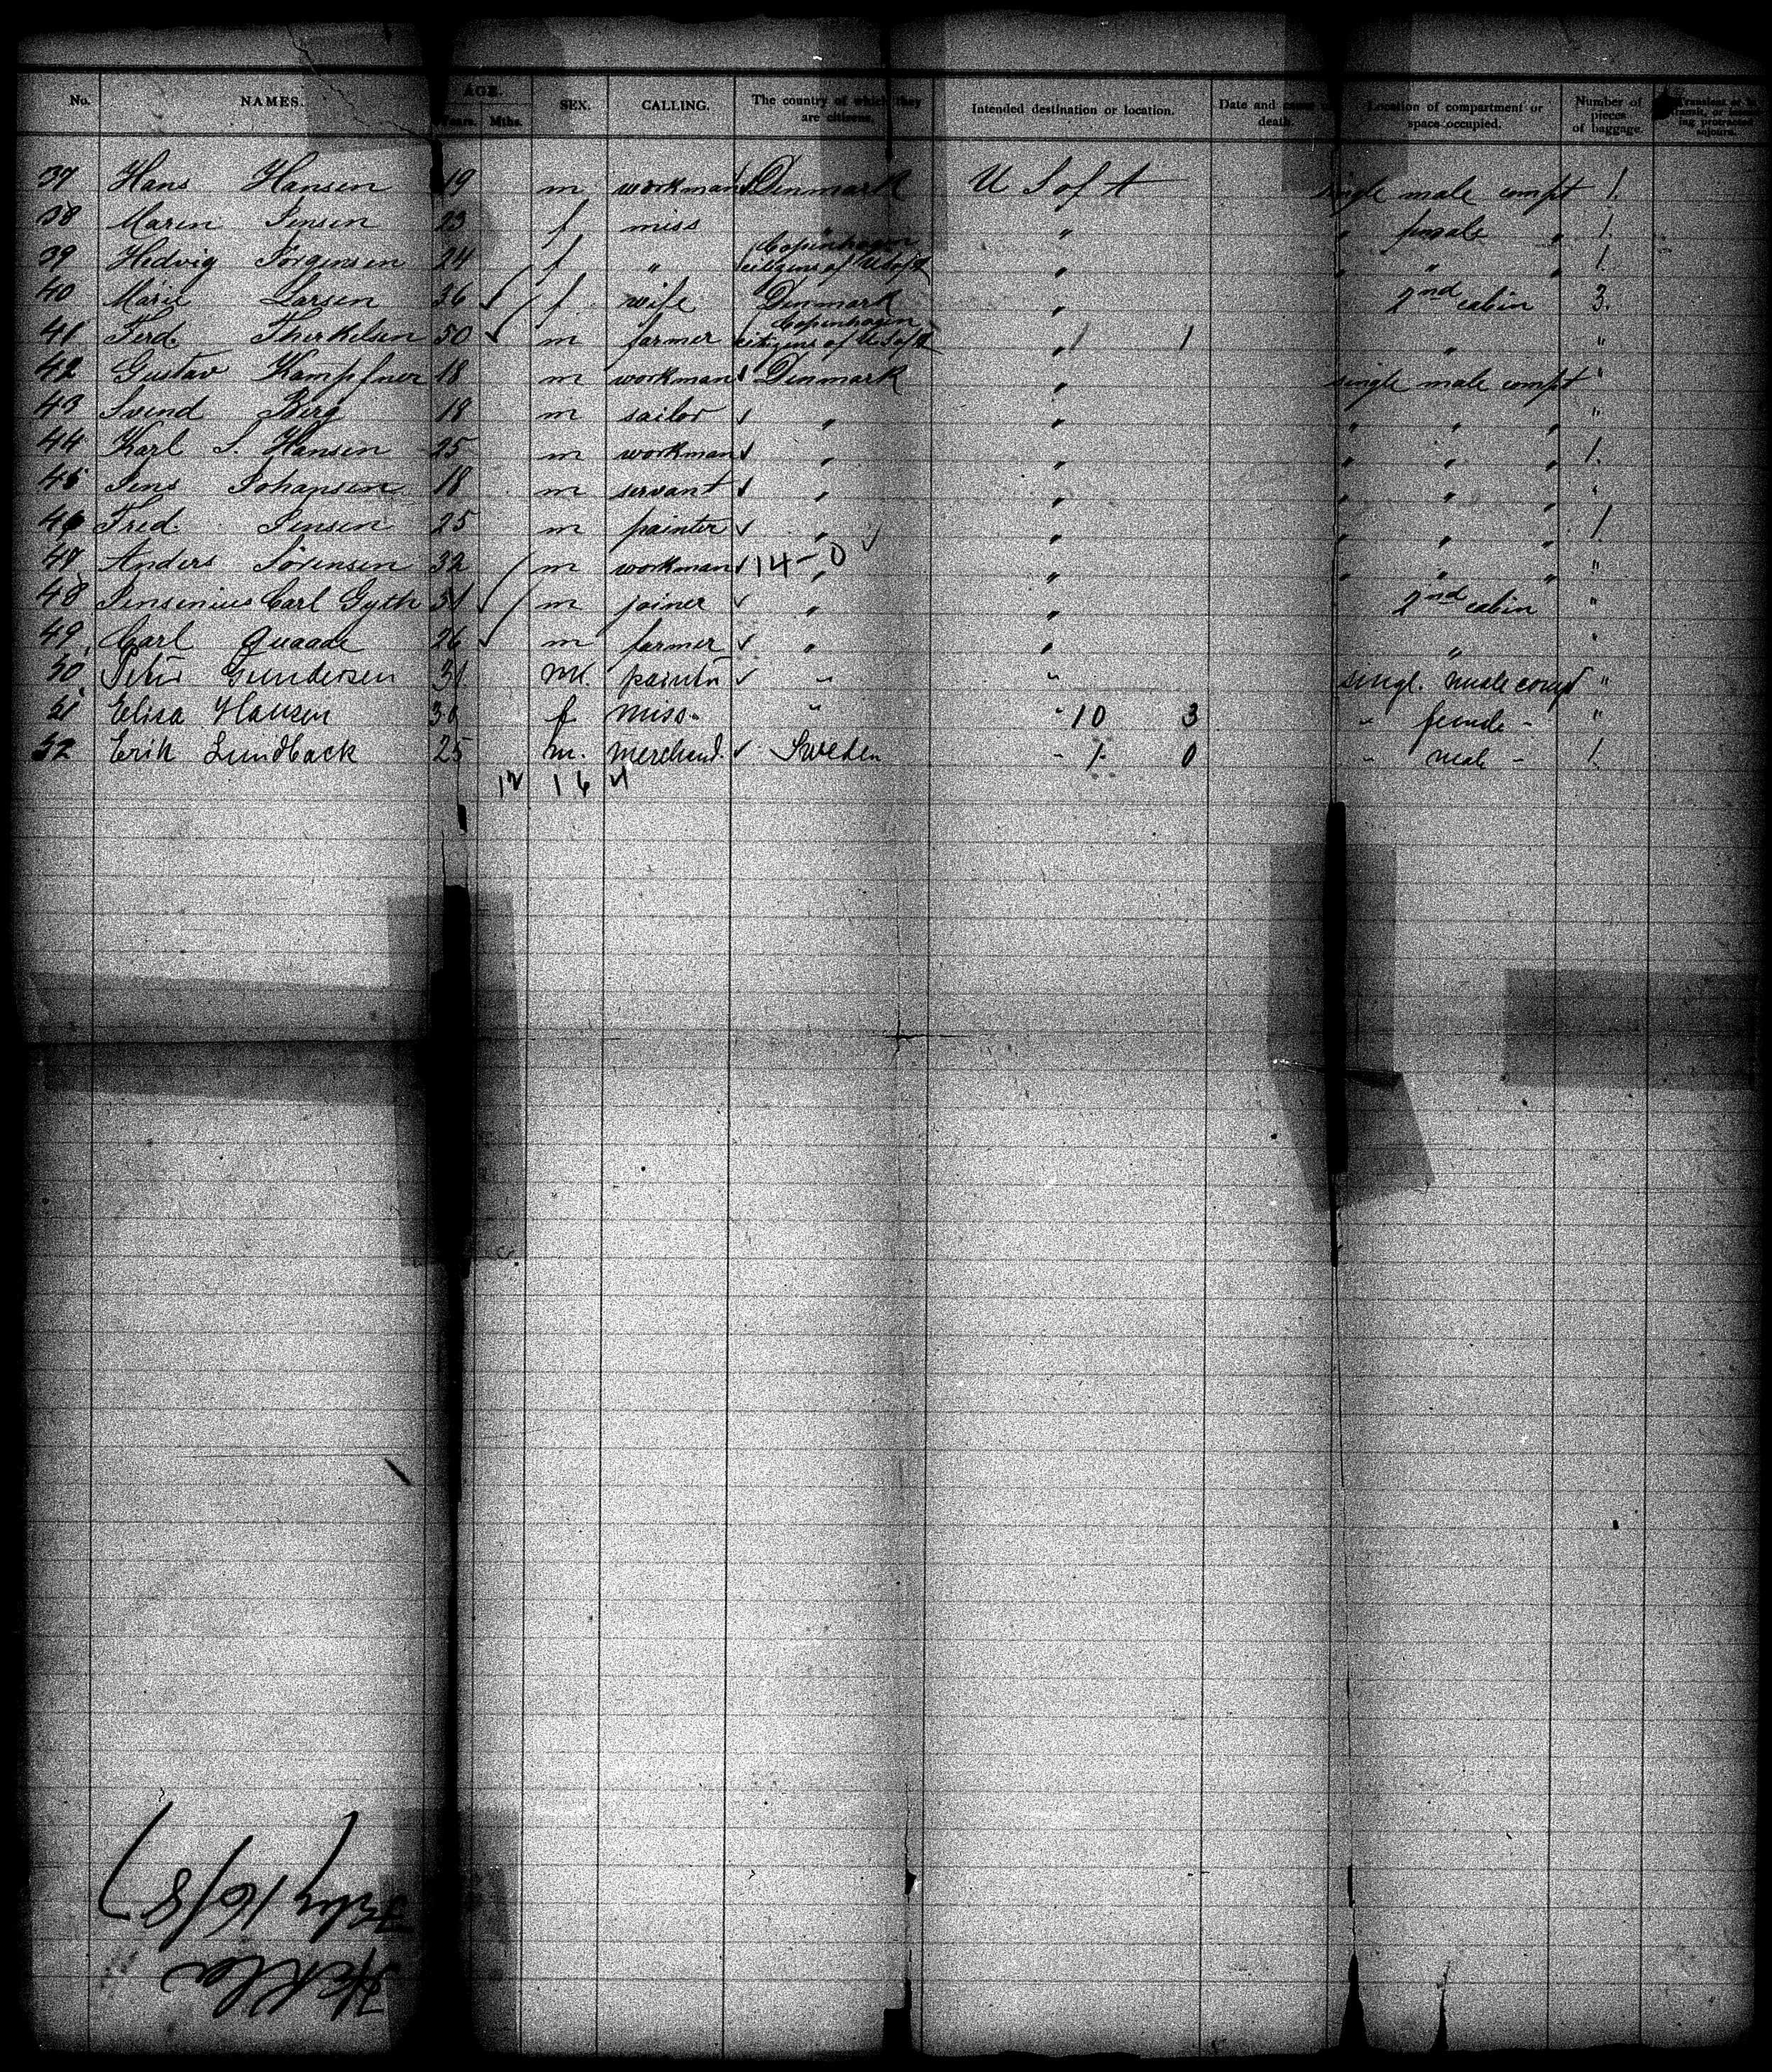 No. NAMES. AGE. Years. Mths. SEX. CALLING. The country of which they are citizens. Intended destination or location. Date and cause of death. Location of compartment or space occupied. Number of pieces of baggage. Transient or in transit, or intending protracted sojourn.
37 Hans Hansen 19 m workman Denmark U S of A single male compt 1.
38 Maren Jensen 23 f miss " " " female " 1.
39 Hedvig Jörgensen 24 f " Copenhagen citizens of U S of A " " " " 1.
40 Marie Larsen 36 f wife Denmark " 2nd cabin 3.
41 Ferd. Therkelsen 50 m farmer Copenhagen citizens of U S of A " 1 1 " "
42 Gustav Kampfner 18 m workman Denmark " single male compt "
43 Svend Berg 18 m sailor " " " " " "
44 Karl S. Hansen 25 m workman " " " " " 1.
45 Jens Johansen 18 m servant " " " " " "
46 Fred. Jensen 25 m painter " " " " " 1.
47 Anders Sörensen 32 m workman 14-0 " " " " " "
48 Jensenius Carl Gyth 31 m joiner " " 2nd cabin "
49 Carl Quaade 26 m farmer " " " "
50 Peter Gundersen 31 m. painter " " singl. male compt "
51 Elisa Hansen 30 f miss. " " 10 3 " female " "
52 Erik Lundback 25 m. merchand. Sweden " 1 0 " male " 1.
12 16 4
Hekla
16/8